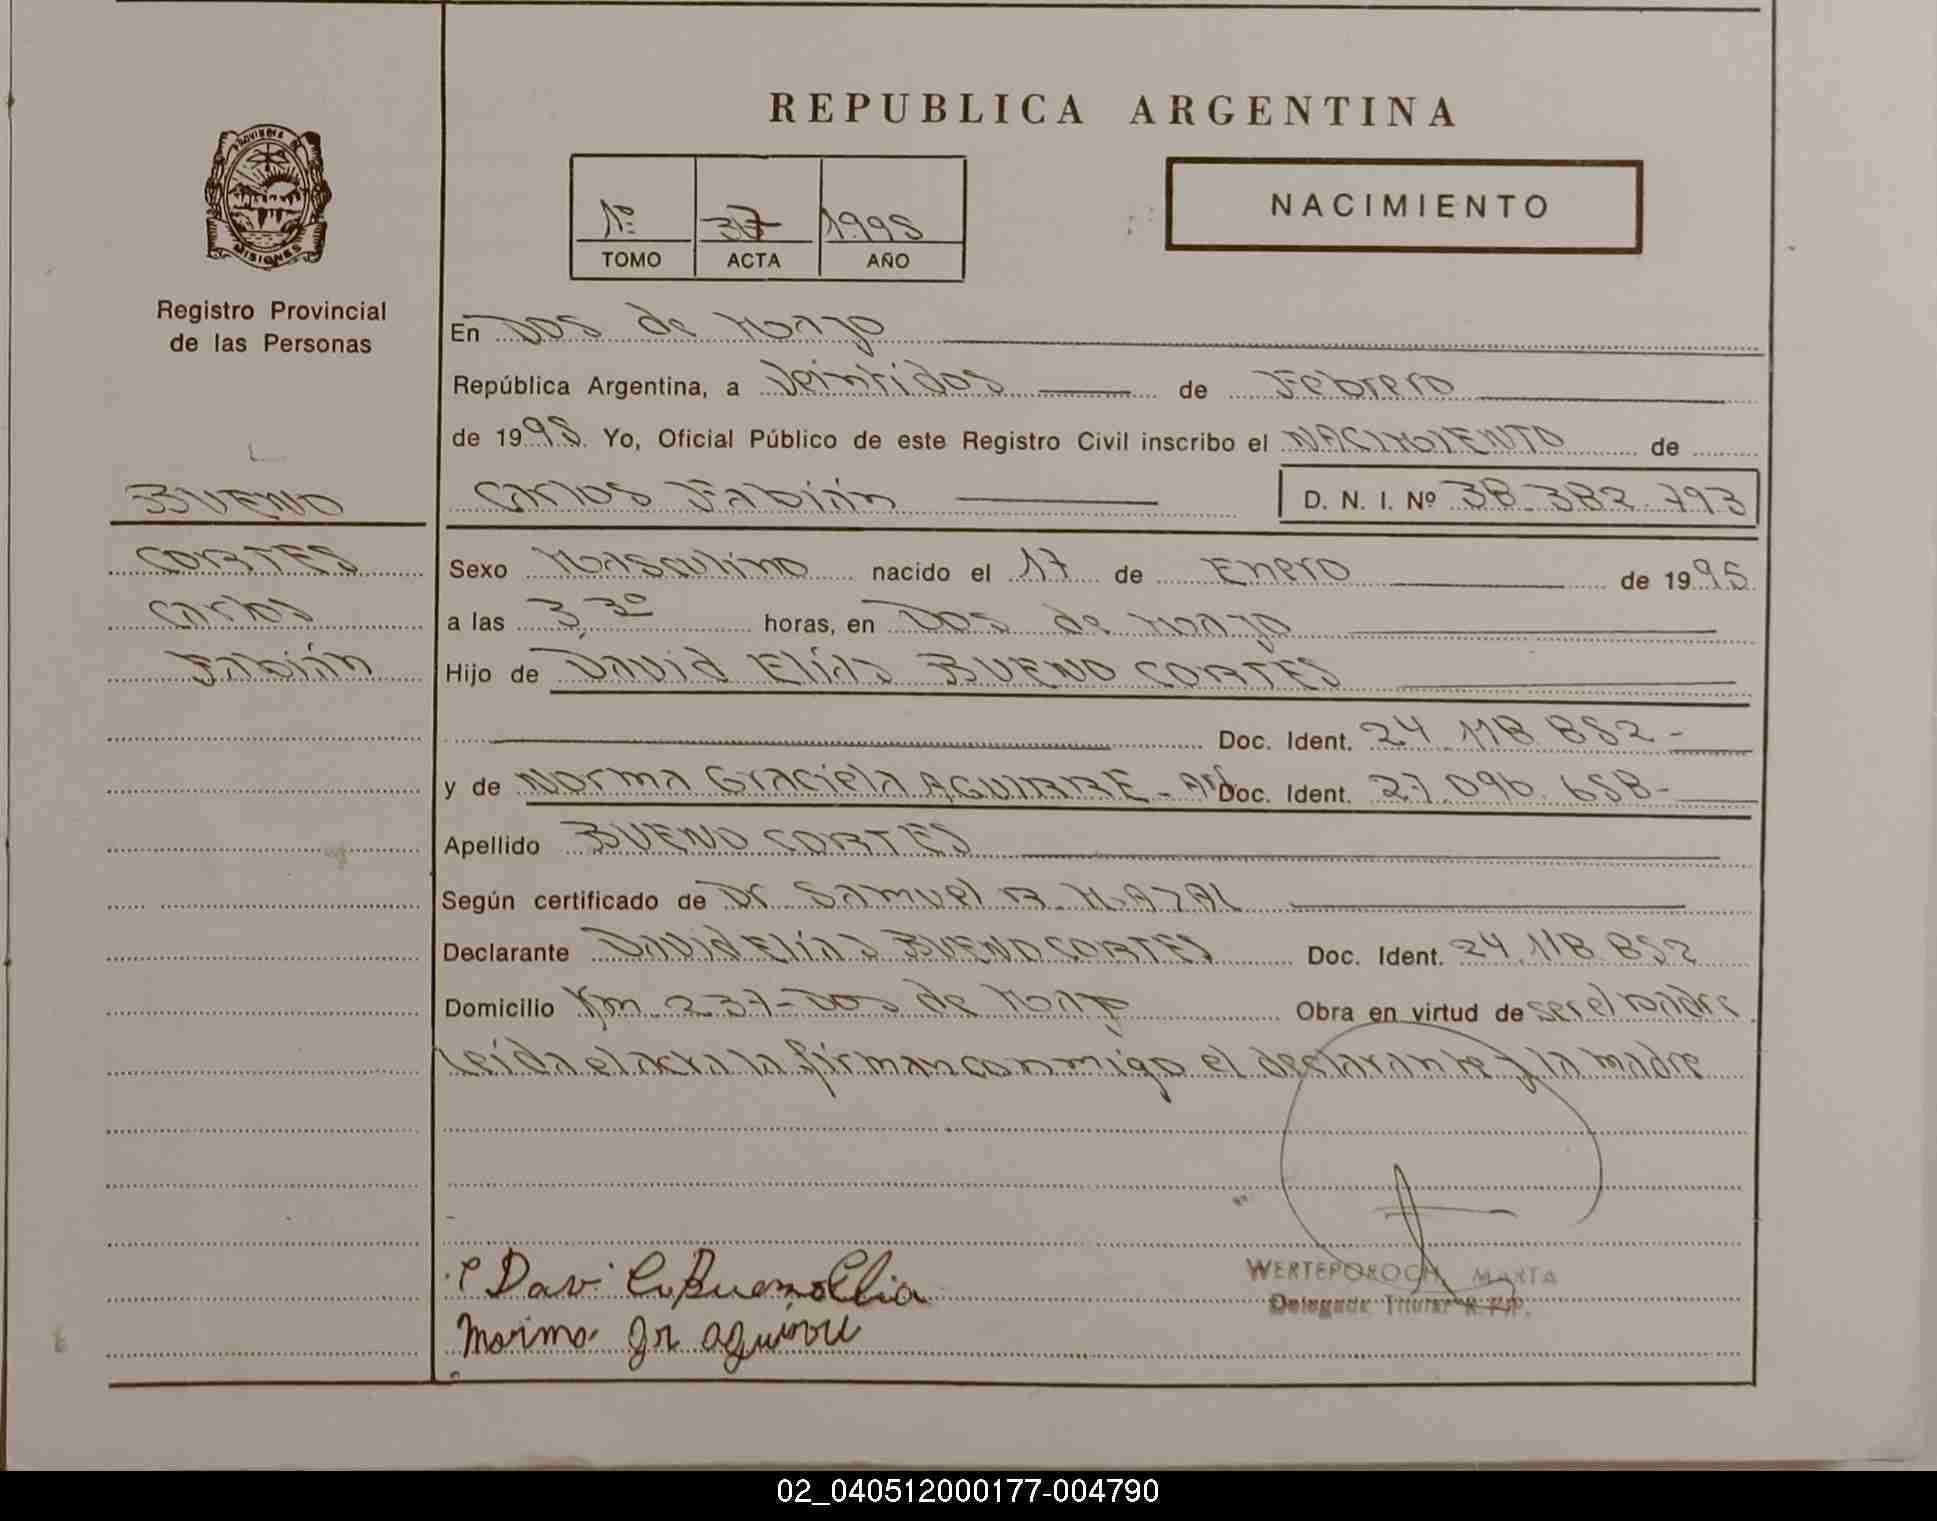 REPUBLICA ARGENTINA
PROVINCIA
MISIONES
Registro Provincial
de las Personas
1º 37 1995
TOMO ACTA AÑO
NACIMIENTO
En Dos de Mayo
República Argentina, a Veintidos de Febrero
de 1995. Yo, Oficial Público de este Registro Civil inscribo el NACIMIENTO de
Carlos Fabián D. N. I. Nº 38.382.793
BUENO
CORTES
Carlos
Fabián
Sexo Masculino nacido el 17 de Enero de 1995.
a las 3,30 horas, en Dos de Mayo
Hijo de David Elías BUENO CORTES
Doc. Ident. 24.118.852-
y de Norma Graciela AGUIRRE - Doc. Ident. 27.096.658-
Apellido BUENO CORTES
Según certificado de Dr. Samuel R.
Declarante David Elías BUENO CORTES Doc. Ident. 24.118.852
Domicilio Km. 237-Dos de Mayo Obra en virtud de ser el padre
Leída el acta la firman conmigo el declarante y la madre
WERTEPOROCH, MARTA
Delegada Titular R.P.P.
02_040512000177-004790